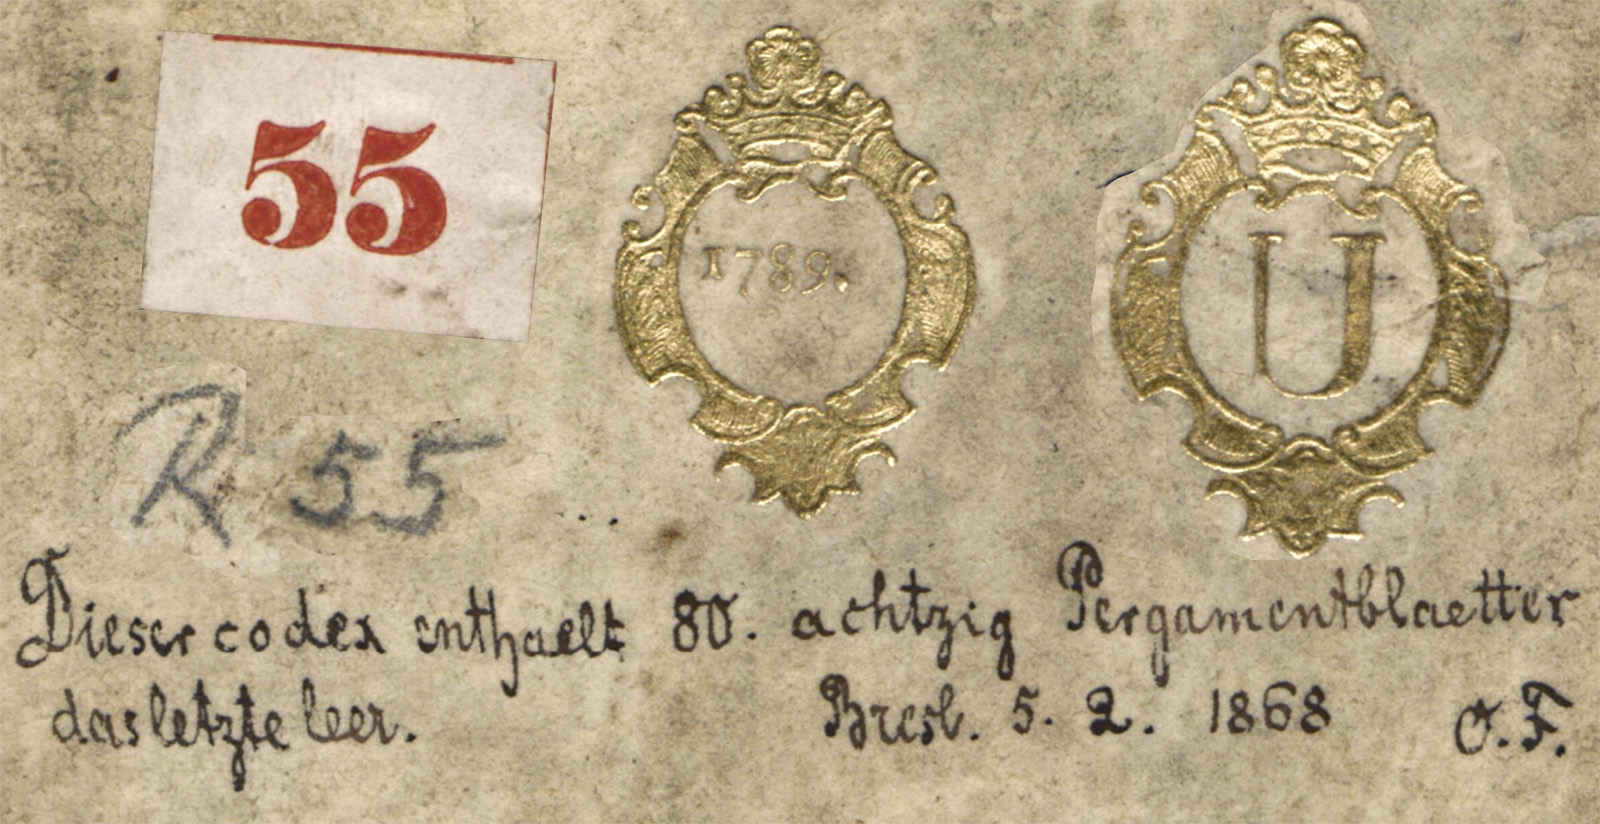 55
1789.
U
R 55
Dieser codex enthaelt 80. achtzig Pergamentblaetter
das letzte leer.
Bresl. 5. 2. 1868 O. F.